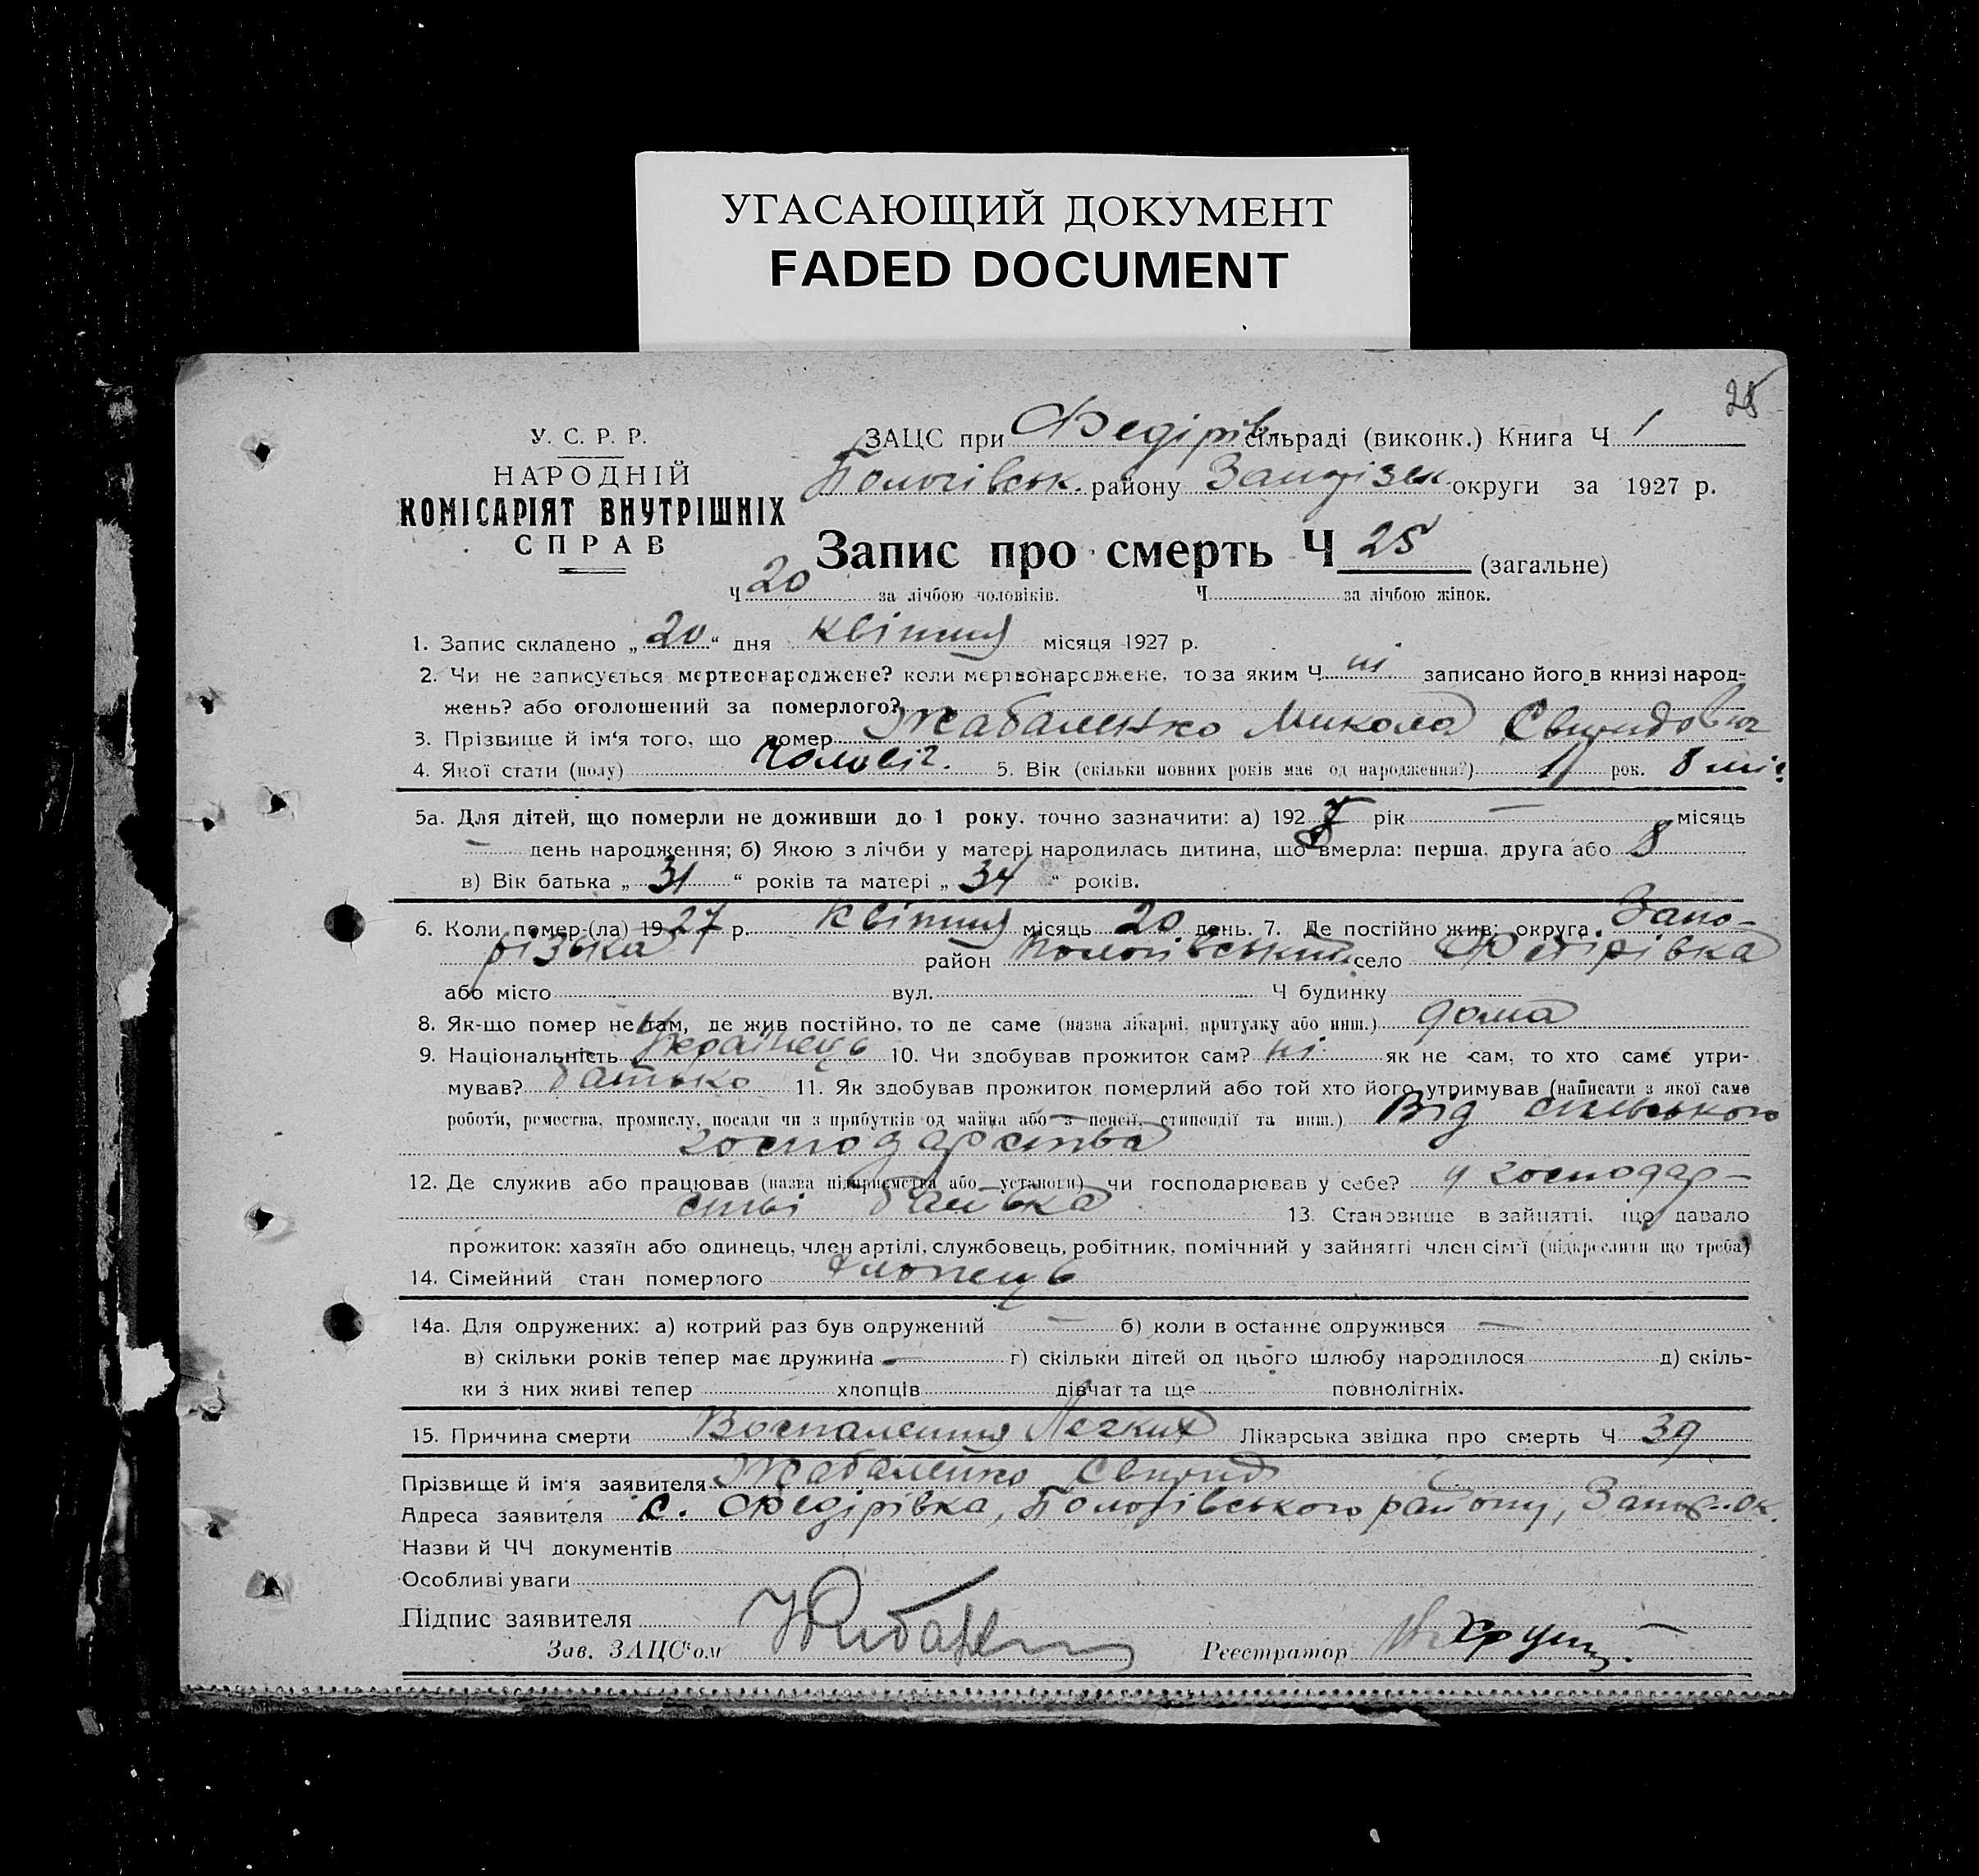 УГАСАЮЩИЙ ДОКУМЕНТ
FADED DOCUMENT
25
У. С. Р. Р.
НАРОДНІЙ
КОМІСАРІЯТ ВНУТРІШНІХ
СПРАВ
ЗАЦС при Федірів. сільраді (виконк.) Книга Ч 1
Пологівськ. району Запорізьк округи за 1927 р.
Запис про смерть Ч 25 (загальне)
Ч 20 за лічбою чоловіків. Ч за лічбою жінок.
1. Запис складено „20“ дня квітня місяця 1927 р.
2. Чи не записується мертвонароджене? коли мертвонароджене, то за яким Ч ні записано його в книзі народ-
жень? або оголошений за померлого?
3. Прізвище й ім'я того, що помер Жабаленко Микола Свиридович
4. Якої стати (полу) Чоловіч. 5. Вік (скільки повних років має од народження?) 1 рок. 8 міс.
5а. Для дітей, що померли не доживши до 1 року, точно зазначити: а) 192 рік — місяць
— день народження; б) Якою з лічби у матері народилась дитина, що вмерла: перша, друга або 8
в) Вік батька „31“ років та матері „34“ років.
6. Коли помер-(ла) 1927 р. квітня місяць 20 день. 7. Де постійно жив: округа Запо-
різька район Пологівський село Федірівка
або місто вул. Ч будинку
8. Як-що помер не там, де жив постійно, то де саме (назва лікарні, притулку або инш.) дома
9. Національність Українець 10. Чи здобував прожиток сам? ні як не сам, то хто саме утри-
мував? батько 11. Як здобував прожиток померлий або той хто його утримував (написати з якої саме
роботи, ремества, промислу, посади чи з прибутків од майна або з пенсії, стипендії та инш.) Від сільського
господарства
12. Де служив або працював (назва підприємства або установи) чи господарював у себе? у господар-
стві батька 13. Становище в зайнятті, що давало
прожиток: хазяїн або одинець, член артілі, службовець, робітник, помічний у зайнятті член сім'ї (підкреслити що треба)
14. Сімейний стан померлого хлопець
14а. Для одружених: а) котрий раз був одружений — б) коли в останнє одружився —
в) скільки років тепер має дружина — г) скільки дітей од цього шлюбу народилося д) скіль-
ки з них живі тепер хлопців дівчат та ще повнолітніх.
15. Причина смерти Воспаления Легких Лікарська звідка про смерть Ч 39
Прізвище й ім'я заявителя Жабаленко Свирид
Адреса заявителя с. Федірівка, Пологівського району, Запор. ок.
Назви й ЧЧ документів
Особливі уваги
Підпис заявителя
Зав. ЗАЦС'ом Реєстратор